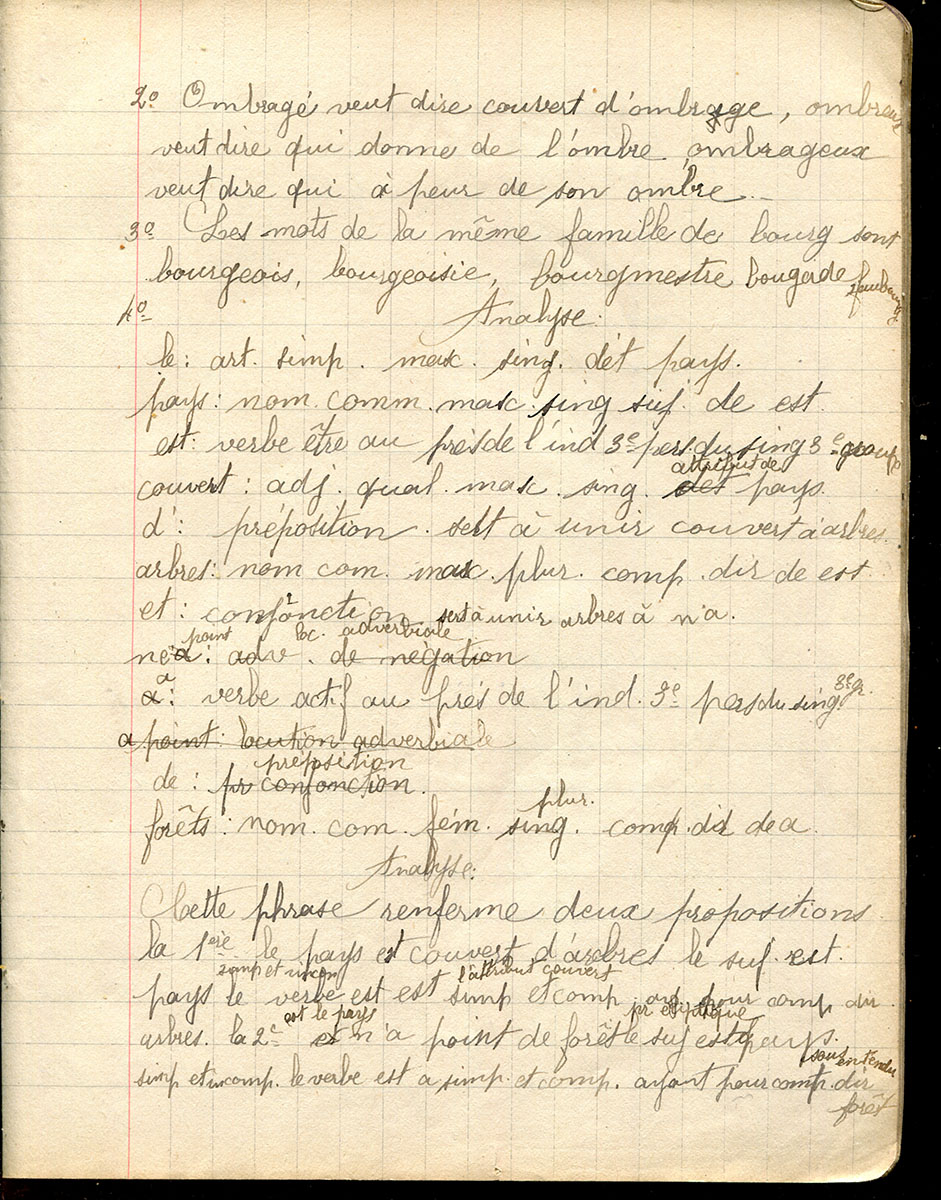 2º Ombragé veut dire couvert d'ombrage, ombreux
veut dire qui donne de l'ombre, ombrageux
veut dire qui à peur de son ombre.
3º Les mots de la même famille de bourg sont
bourgeois, bourgeoisie, bourgmestre bougade faubourg
4º Analyse:
le: art. simp. masc. sing. dét pays.
pays: nom. comm. masc. sing suj. de est.
est: verbe être au prés de l'ind 3e pers. du sing 3e groupe
attribut de
couvert: adj. qual. masc. sing. det pays.
d': préposition. sert à unir couvert à arbres.
arbres: nom com. masc. plur. comp. dir de est.
et: conjonction sert à unir arbres à n'a.
point loc. adverbiale
ne a: adv. de négation
a
a: verbe actif au prés de l'ind. 3e pers du sing 3e gr.
a point: locution adverbiale
préposition
de: pr conjonction.
plur.
forêts: nom. com. fém. sing. comp. dir de a.
Analyse:
Cette phrase renferme deux propositions
la 1ère le pays est couvert d'arbres le suj. est.
simp et incomp l'attribut couvert
pays le verbe est est simp et comp. pour comp dir
est le pays
arbres. la 2e et n'a point de forêt le suj est pays.
sous entendu
simp et incomp. le verbe est a simp. et comp. ayant pour comp. dir
forêt